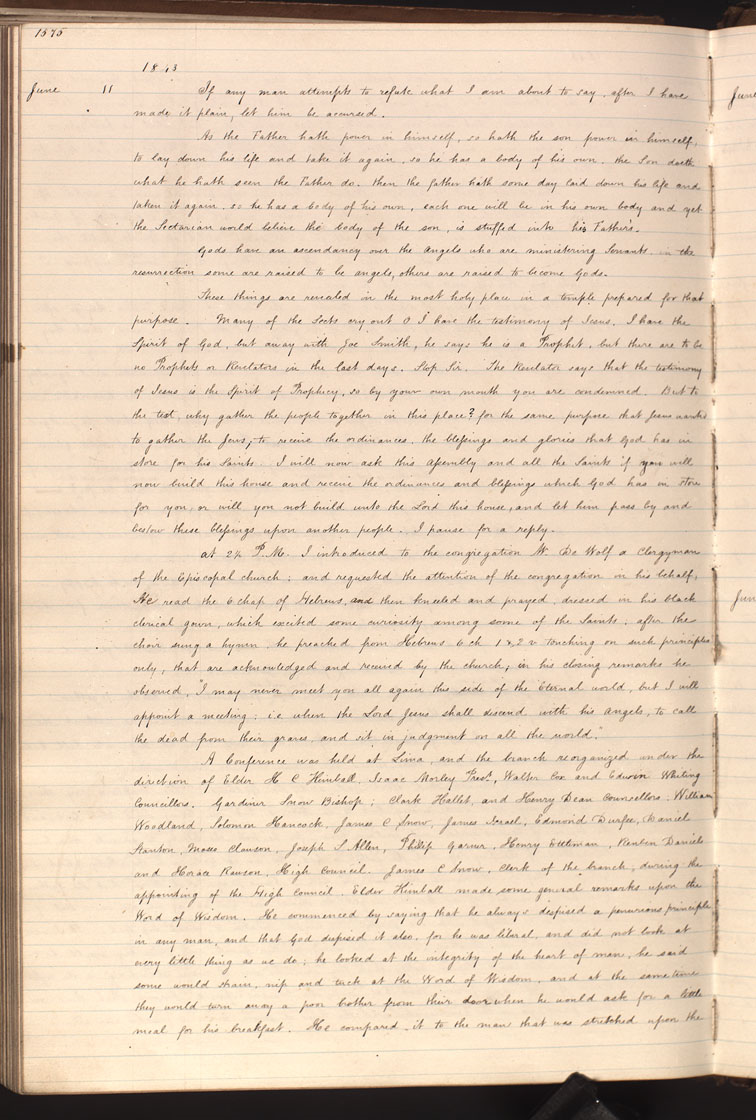 1575
1843
June 11 If any man attempts to refute what I am about to say, after I have
made it plain, let him be accursed.
As the Father hath power in himself, so hath the son power in himself,
to lay down his life and take it again, so he has a body of his own. the Son doeth
what he hath seen the Father do. then the father hath some day laid down his life and
taken it again, so he has a body of his own, each one will be in his own body and yet
the Sectarian world believe the body of the son, is stuffed into his Father's.
Gods have an ascendancy over the angels who are ministering Servants. in the
resurrection some are raised to be angels, others are raised to become Gods.
These things are revealed in the most holy place in a temple prepared for that
purpose. Many of the Sects cry out O I have the testimony of Jesus, I have the
Spirit of God, but away with Joe Smith, he says he is a Prophet, but there are to be
no Prophets or Revelators in the last days. Stop Sir. The Revelator says that the testimony
of Jesus is the Spirit of Prophecy, so by your own mouth you are condemned. But to
the text, why gather the people together in this place? for the same purpose that Jesus wanted
to gather the Jews, to receive the ordinances, the blessings and glories that God has in
store for his Saints. I will now ask this assembly and all the Saints if you will
now build this house and receive the ordinances and blessings which God has in store
for you, or will you not build unto the Lord this house, and let him pass by and
bestow these blessings upon another people. I pause for a reply.
at 2½ P.M. I introduced to the congregation Mr De Wolf a Clergyman
of the Episcopal church; and requested the attention of the congregation in his behalf,
He read the 6 chap of Hebrews, and then kneeled and prayed, dressed in his black
clerical gown, which excited some curiosity among some of the Saints; after the
choir sung a hymn he preached from Hebrews 6 ch 1 & 2 v touching on such principles
only, that are acknowledged and received by the church, in his closing remarks he
observed, "I may never meet you all again this side of the Eternal world, but I will
appoint a meeting; i.e. when the Lord Jesus shall descend with his Angels, to call
the dead from their graves and sit in judgment on all the world."
A Conference was held at Lima, and the branch reorganized under the
direction of Elder H C Kimball. Isaac Morley Prest, Walter Cox and Edwin Whiting
Councillors. Gardiner Snow Bishop; Clark Hallet, and Henry Dean Counsellors. William
Woodland, Solomon Hancock, James C Snow, James Israel, Edmond Durfee, Daniel
Stanton, Moses Clawson, Joseph S Allen, Philip Garner, Henry Ettleman, Reuben Daniels
and Horace Rawson, High Council. James C Snow, Clerk of the branch, during the
appointing of the High Council. Elder Kimball made some general remarks upon the
Word of Wisdom. He commenced by saying that he always despised a penurious principle
in any man, and that God despised it also, for he was liberal, and did not look at
every little thing as we do; he looked at the integrity of the heart of man, he said
some would strain, nip and tuck at the Word of Wisdom, and at the same time
they would turn away a poor brother from their door when he would ask for a little
meal for his breakfast. He compared it to the man that was stretched upon the
June
June